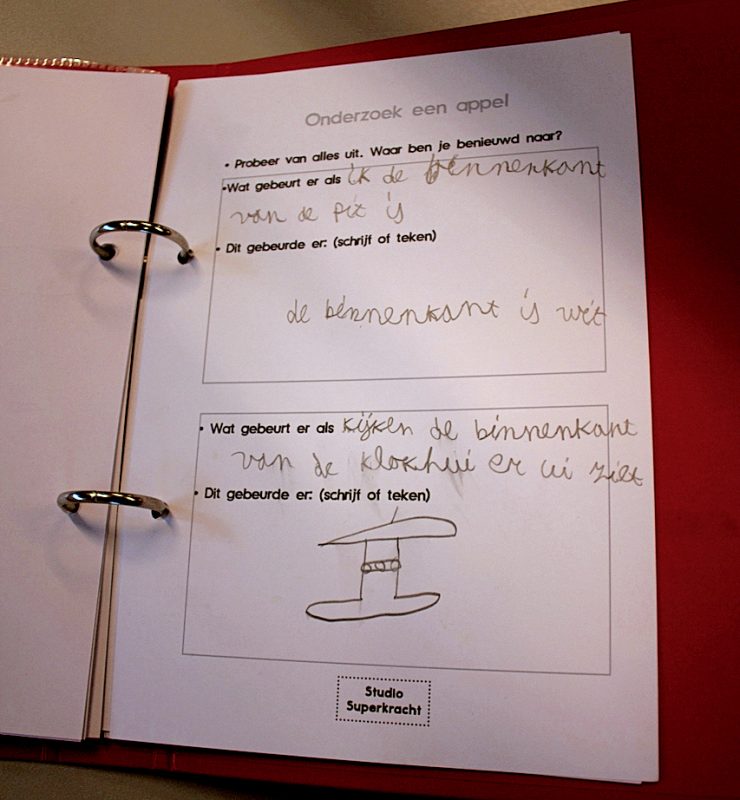 Onderzoek een appel
• Probeer van alles uit. Waar ben je benieuwd naar?
•Wat gebeurt er als ik de binnenkant
van de pit is
• Dit gebeurde er: (schrijf of teken)
de binnenkant is wit
• Wat gebeurt er als kijken de binnenkant
van de klokhui er ui ziet
• Dit gebeurde er: (schrijf of teken)
Studio
Superkracht